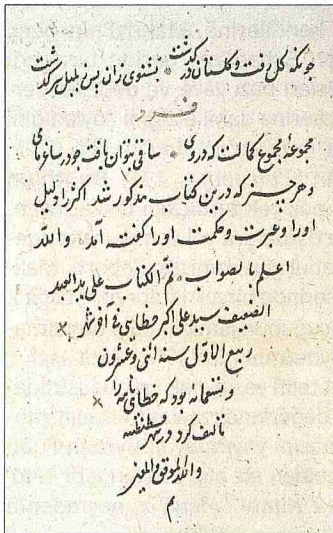 چونکه گل رفت و گلستان درگذشت * نشنوی زان پس بلبل سرگذشت
فرد
مجموعهٔ مجموع کمالست که دروی * سافی نتوان یافت جود
وهر چیز که درین کتاب مذکور شد اکثر را دلیل
اورا و عبرت و حکمت اورا گفته آمد والله
اعلم بالصواب تم الکتاب علی ید العبد
الضعیف سید علی اکبر خطایی فی اوخر
ربیع الاول سنه اثنی وعشرون
و تسعمائه بود که خطای نامه را
تالیف کرد در شهر قسطنطنیه
والله الموفق والمعین
م